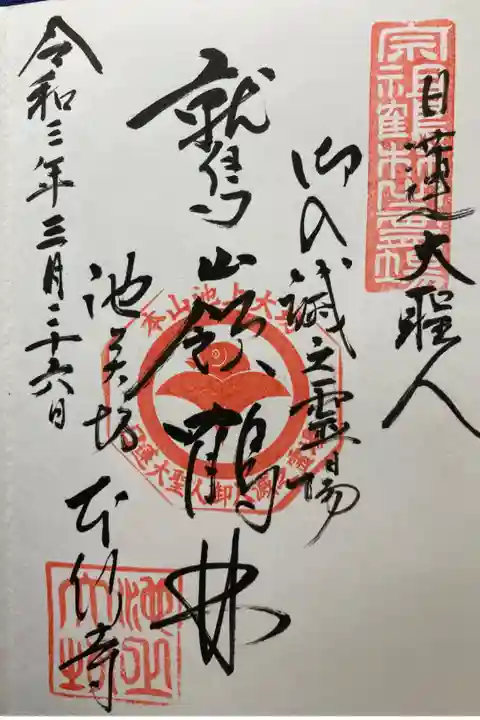 宗祖鶴林之霊場
日蓮大聖人
御入滅之霊場
鷲嶺鶴林
池上大坊 本行寺
令和三年三月二十六日
本山池上大坊
日蓮大聖人御入滅
池上大坊